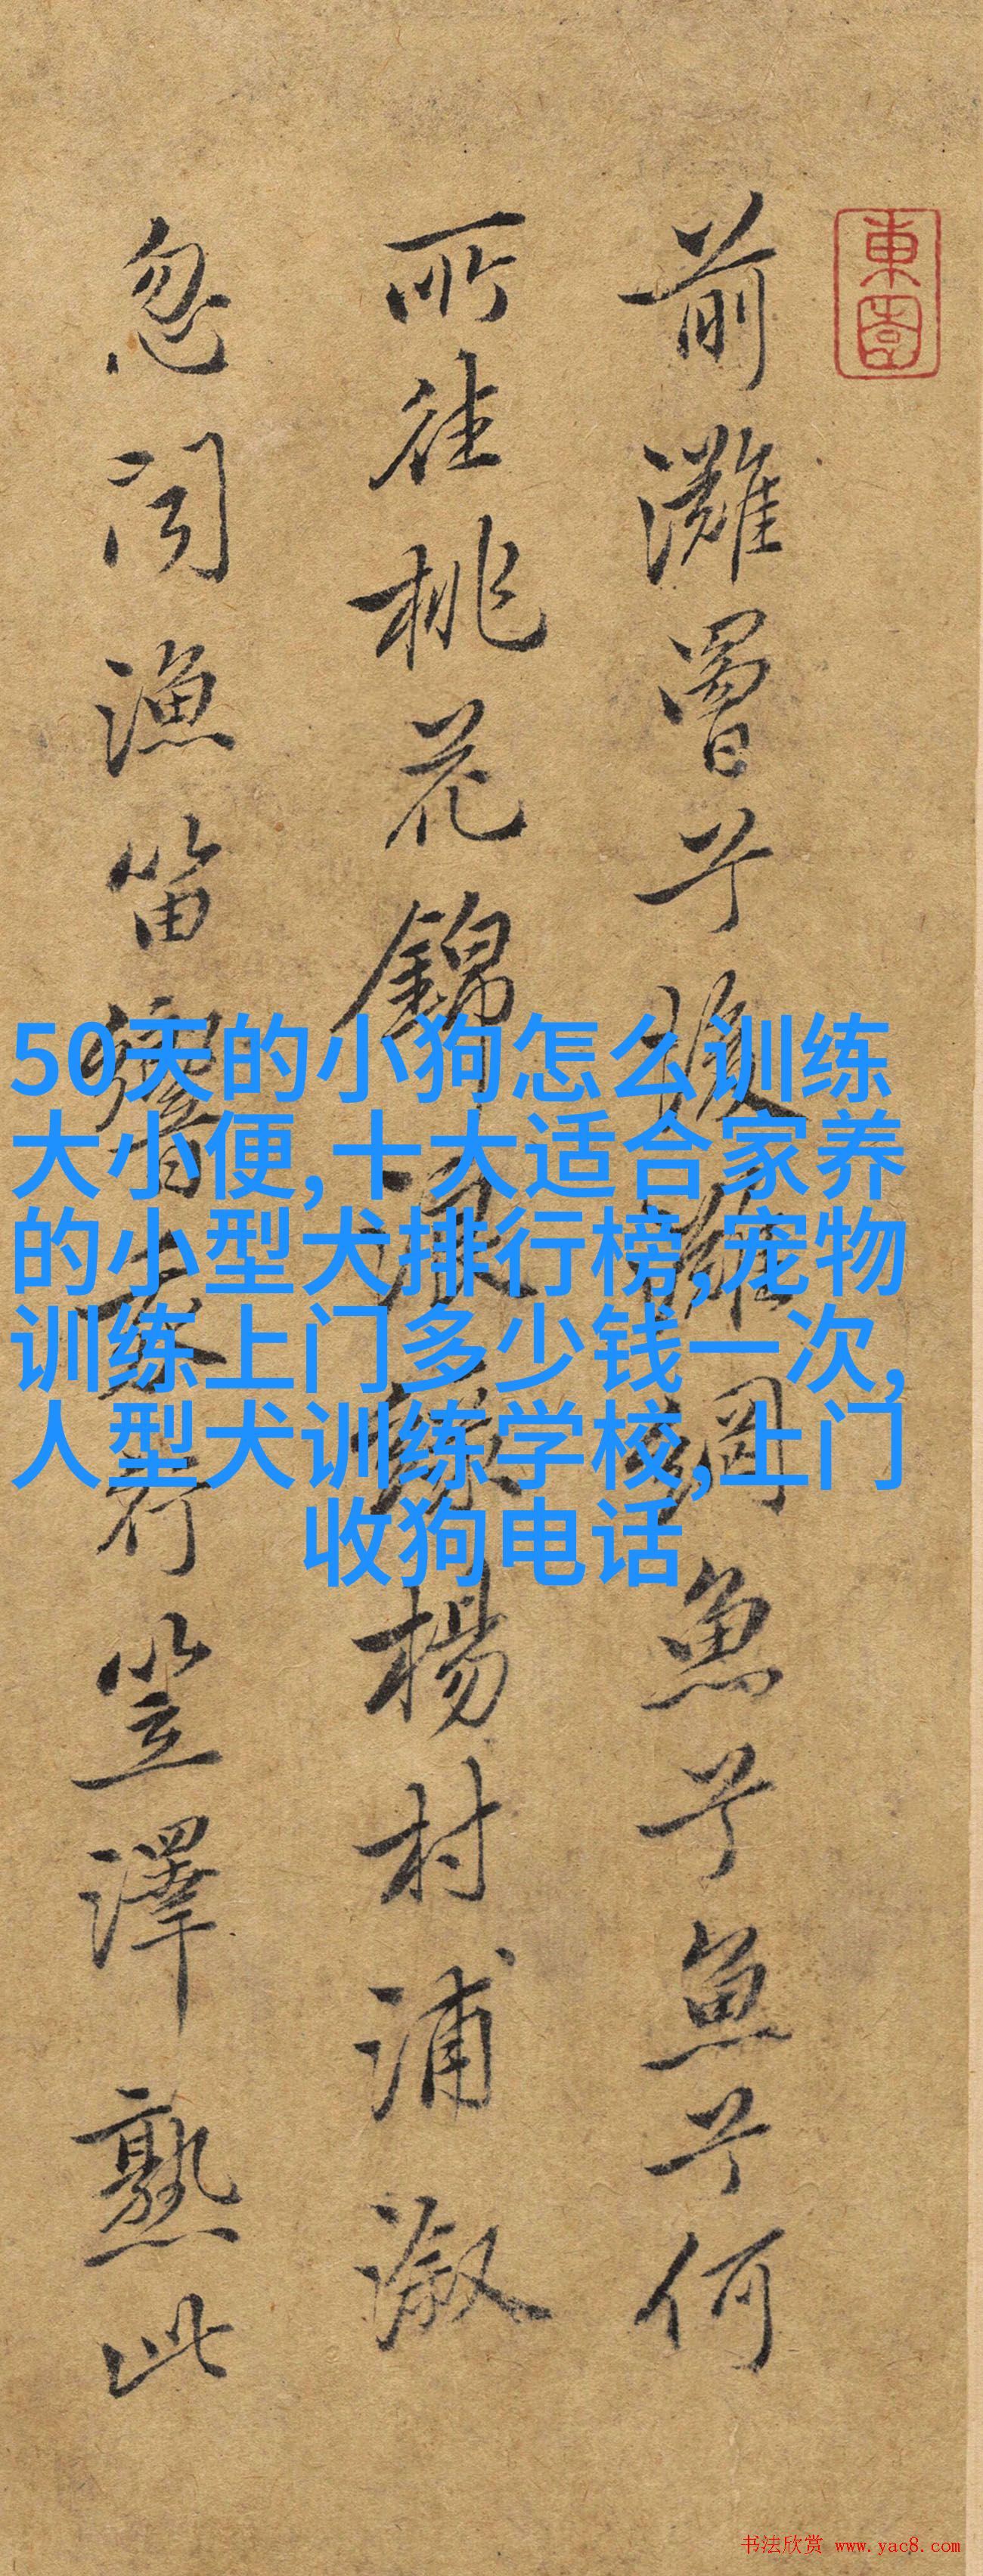 東園
前灘罾兮後灘網魚兮魚兮何
所往桃花錦浪綠楊村浦溆
忽聞漁笛響我行笠澤熟此
50天的小狗怎么训练
大小便,十大适合家养
的小型犬排行榜,宠物
训练上门多少钱一次,
人型犬训练学校,上门
收狗电话
书法欣赏 www.yac8.com